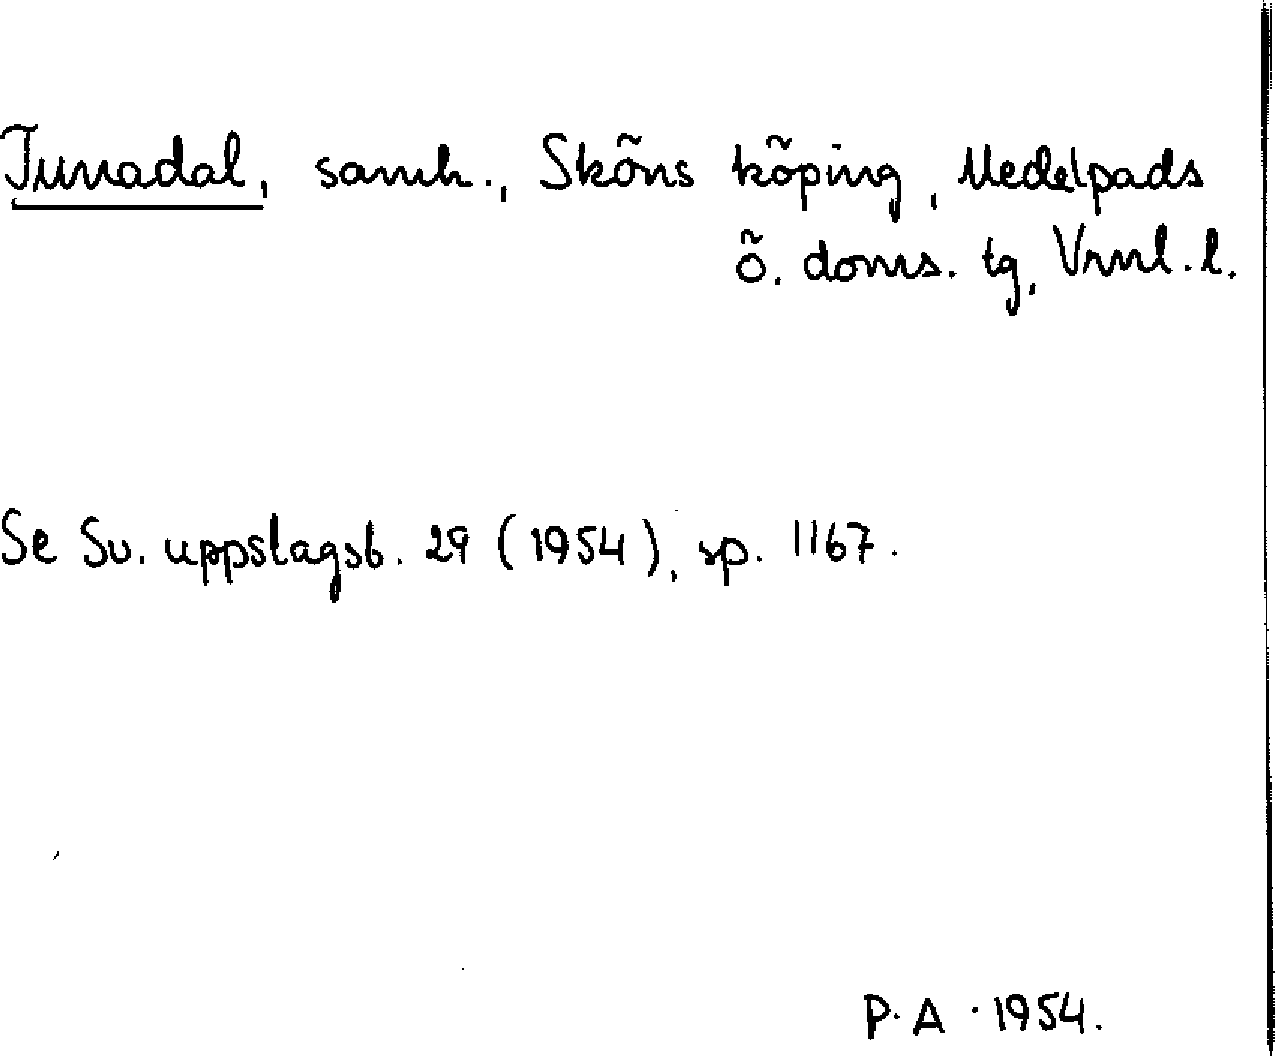 Tunadal, samh., Sköns köping, Medelpads
ö. doms. tg, Vrnl. l.
Se Sv. uppslagsb. 29 (1954), sp. 1167.
P. A. 1954.